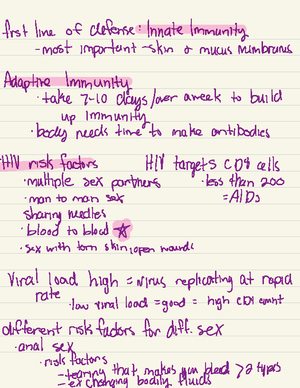 first line of defense: Innate Immunity
-most important -skin & mucus membranes
Adaptive Immunity
·take 7-10 days/over a week to build
up immunity
·body needs time to make antibodies
HIV risk factors
·multiple sex partners
·man to man sex
sharing needles
·blood to blood ☆
·sex with torn skin/open wounds
HIV targets CD4 cells
·less than 200
=AIDs
Viral load high = virus replicating at rapid
rate
·low viral load = good = high CD4 count
different risk factors for diff. sex
·anal sex
·risk factors
-tearing that makes you bleed > 2 types
-exchanging bodily fluids